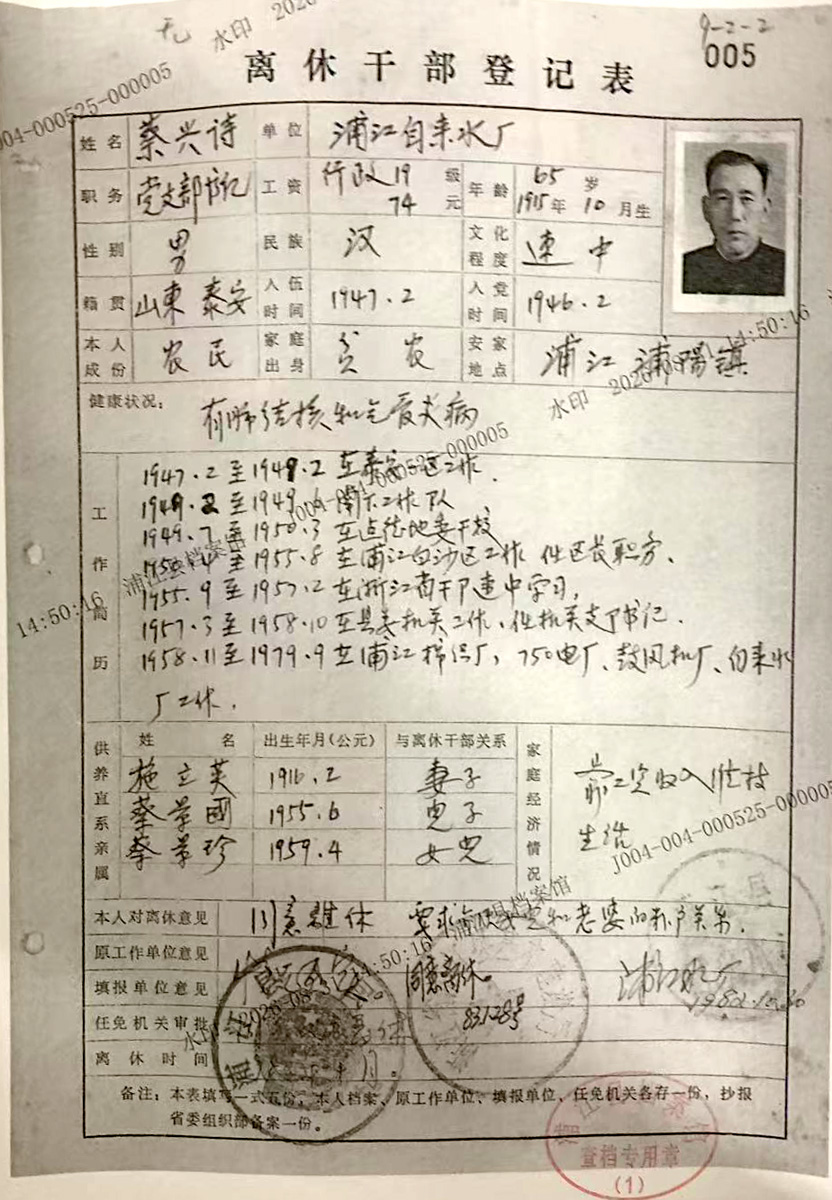 无
9-2-2
005
离休干部登记表
姓名 蔡兴诗 单位 浦江自来水厂
职务 党支部书记 工资 行政19级 74元 年龄 65岁 1915年10月生
性别 男 民族 汉 文化程度 速中
籍贯 山東泰安 入伍时间 1947.2 入党时间 1946.2
本人成份 农民 家庭出身 贫农 安家地点 浦江浦陽镇
健康状况: 有肺结核和气管炎病
工作简历
1947.2至1949.2在泰安 区工作.
1949.2至1949.6南下工作队
1949.7至1950.3在 地委干校
至1955.8在浦江白沙区工作 任区长职务、
1955.9至1957.2在浙江省干部速中学习,
1957.3至1958.10在县委机关工作、任机关支部书记.
1958.11至1979.9在浦江 厂,750电厂、鼓风机厂、自来水
厂工作.
供养直系亲属
姓名 出生年月(公元) 与离休干部关系
施立英 1916.2 妻子
蔡荣國 1955.6 儿子
蔡荣珍 1959.4 女儿
家庭经济情况
靠工资收入维持
生活
本人对离休意见 同意離休 要求 和老婆的 关系.
原工作单位意见
填报单位意见 同意离休 浦江水厂
任免机关审批 83128号
离休时间 月。
备注:本表填写一式五份,本人档案、原工作单位、填报单位、任免机关各存一份,抄报
省委组织部备案一份。
查档专用章
(1)
水印
J004-004-000525-000005
14:50:16
浦江县档案馆